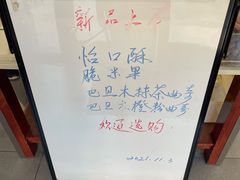 新品上
怡口酥
脆米果
巴旦木抹茶曲奇
巴旦木橙粉曲奇
欢迎选购
2021.11.3